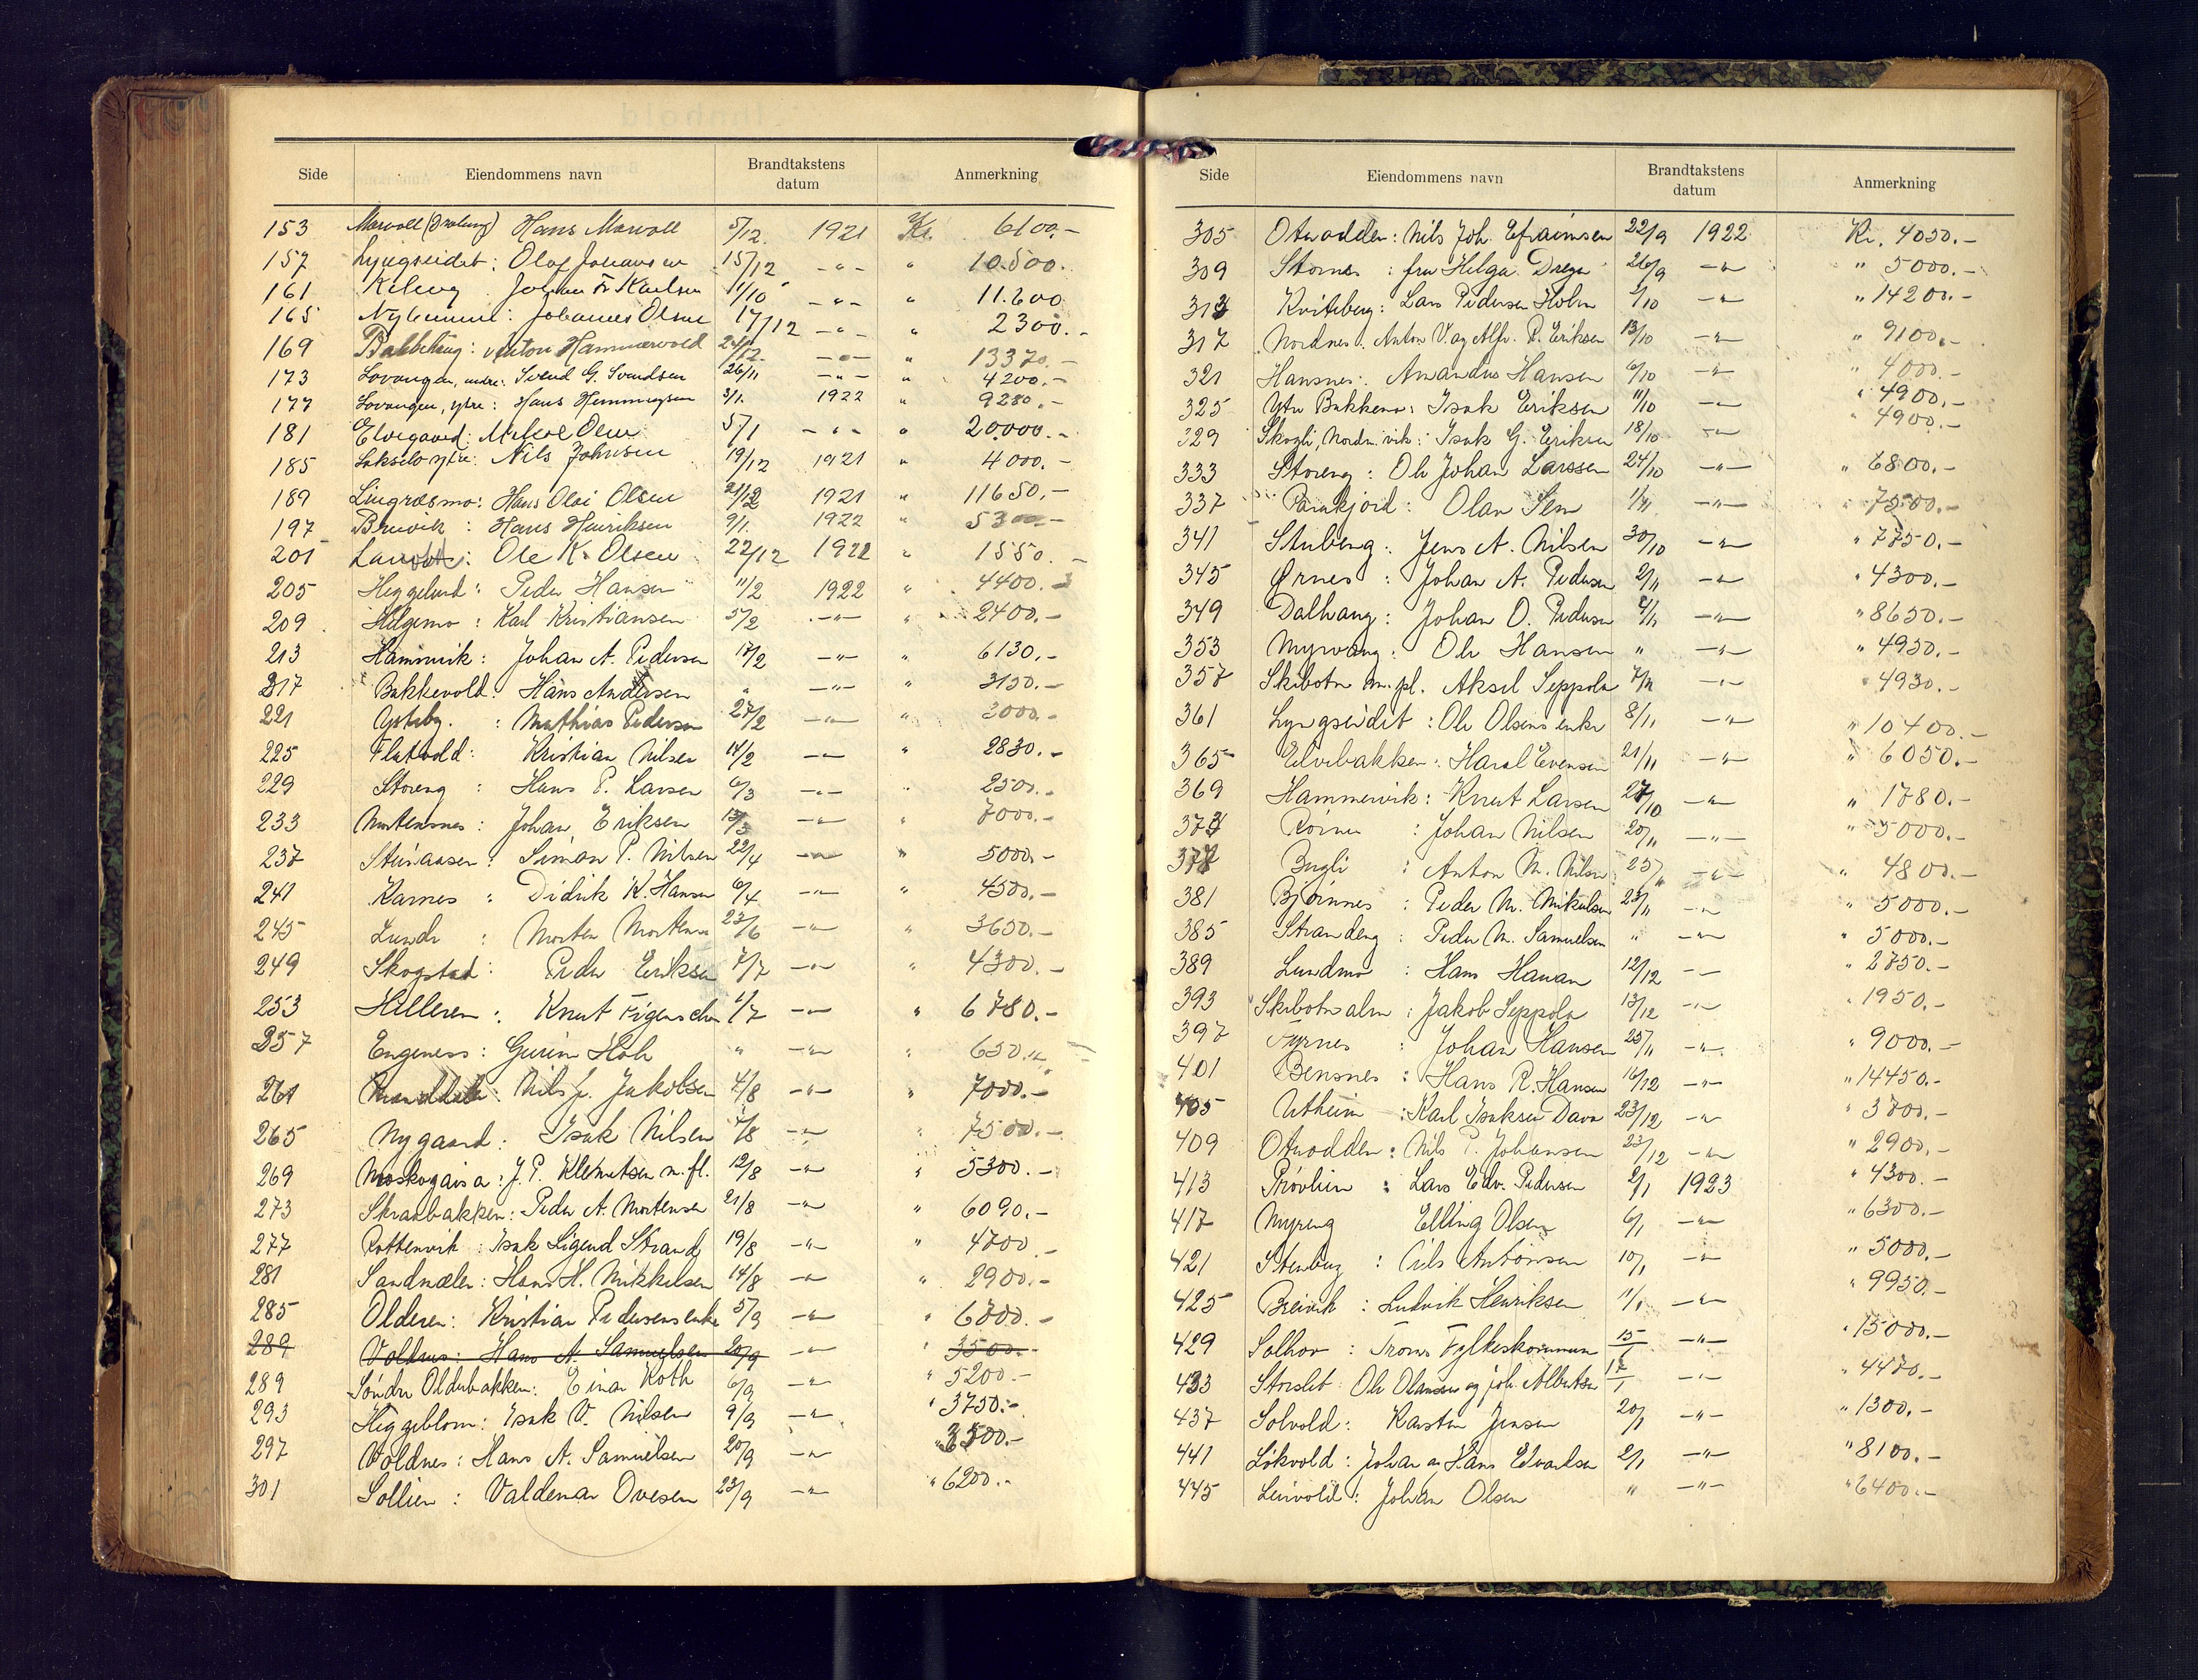 Side Eiendommens navn Brandtakstens datum Anmerkning
153 Marvoll Hans Marvoll 5/12. 1921 Kr. 6100.-
157 Lyngseidet: Olaf Johansen 15/12 -"- " 10.500.
161 Johan Fr Karlsen 11/10 -"- " 11.600
165 Johannes Olsen 17/12 -"- " 2300.-
169 Anton Hammervold -"- " 13370.-
173 Lovangen, indre: Svend G. Svendsen 26/11 -"- " 4200.-
177 Lovangen, ytre: Hans Hemmingsen 3/1. 1922 " 9280.-
181 Elvegaard: Mikal Olsen 5/1 -"- " 20.000.-
185 Nils Johnsen 19/12 1921 " 4000.-
189 Lingræsmo: Hans Olai Olsen 1921 " 11650.-
197 Breivik: Hans Henriksen 9/1. 1922 " 5300.-
201 Ole K. Olsen 22/12 1921 " 1550.-
205 Heggelund: Peder Hansen 11/2 1922 " 4400.-
209 Helgemo: Karl Kristiansen 5/2 -"- " 2400.-
213 Hamnvik: Johan A. Pedersen 17/2 -"- " 6130.-
217 Bakkevold: Hans Andersen " -"- " 3150.-
221 Mathias Pedersen 27/2 -"- " 3000.-
225 Flatvold: Kristian Nilsen 14/2 -"- " 2830.-
229 Storeng: Hans P. Larsen 6/3 -"- " 2500.-
233 Mortensnes: Johan Eriksen 13/3 -"- " 7000.-
237 Steinaasen: Simon P. Nilsen 22/4 -"- " 5000.-
241 Karnes: Didrik K. Hansen 6/4 -"- " 4500.-
245 Lunde: Morten Mortensen 23/6 -"- " 3650.-
249 Skogstad: Peder Eriksen 7/7 -"- " 4300.-
253 Hilleren: Knut Figenschau 1/7 -"- " 6780.-
257 Engeness: Gurine Hoh " -"- " 650.-
261 Nils J. Jakobsen 4/8 -"- " 7000.-
265 Nygaard: Isak Nilsen 7/8 -"- " 7500.-
269 Moskogaisa: J. P. Klemetsen m.fl. 12/8 -"- " 5300.-
273 Skraabakken: Peder A. Mortensen 21/8 -"- " 6090.-
277 Rottenvik: Isak Ligend Strand 19/8 -"- " 4700.-
281 Sandmælen: Hans H. Mikkelsen 14/8 -"- " 2900.-
285 Olderen: Kristian Pedersens enke 5/9 -"- " 6700.-
289 Voldnes: Hans A. Samuelsen 20/9 -"- " 3500.-
289 Søndre Olderbakken: Einar Koth 6/9 -"- " 5200.-
293 Heggeblom: Isak V. Nilsen 9/9 -"- " 3750.-
297 Voldnes: Hans A. Samuelsen 20/9 -"- " 3500.-
301 Sollien: Valdemar Ovesen 23/9 -"- " 6200.-
Side Eiendommens navn Brandtakstens datum Anmerkning
305 Oteradden: Nils Joh. Efraimsen 22/9 1922 Kr. 4050.-
309 Stornes: fru Helga Dreyer 26/9 -"- " 5000.-
313 Kviteberg: Lars Pedersen Holm /10 -"- " 14200.-
317 Nordnes. Anton V. og Alfr. P. Eriksen 13/10 -"- " 9100.-
321 Hansnes: Amandus Hansen 6/10 -"- " 4000.-
325 Ytre Bakkeno: Isak Eriksen 11/10 -"- " 4900.-
329 Skogli, Nordm.vik: Isak G. Eriksen 18/10 -"- " 4900.-
333 Storeng: Ole Johan Larssen 24/10 -"- " 6800.-
337 Parakjord: Olav Sem 1/11 -"- " 7500.-
341 Stubeng: Jens A. Nilsen 30/10 -"- " 7750.-
345 Ørnes: Johan A. Pedersen 2/11 -"- " 4300.-
349 Dalhaug: Johan O. Pedersen 4/11 -"- " 8650.-
353 Myrvang: Ole Hansen " -"- " 4950.-
357 Skibotn m.pl. Aksel Seppola 7/11 -"- " 4930.-
361 Lyngseidet: Ole Olsens enke 8/11 -"- " 10400.-
365 Elvebakken: Haral Evensen 21/11 -"- " 6050.-
369 Hammervik: Knut Larsen 27/10 -"- " 1780.-
373 Johan Nilsen 20/11 -"- " 5000.-
377 Anton M. Nilsen 25/11 -"- " 4800.-
381 Bjørnnes: Peder M. Mikalsen 23/11 -"- " 5000.-
385 Strandeng: Peder M. Samuelsen " -"- " 5000.-
389 Lundmo: Hans Hansen 12/12 -"- " 2750.-
393 Skibotn alm: Jakob Seppola 13/12 -"- " 1950.-
397 Fyrnes: Johan Hansen 25/11 -"- " 9000.-
401 Bensnes: Hans R. Hansen 16/12 -"- " 14450.-
405 Utheim: Karl Isaksen Dava 23/12 -"- " 3700.-
409 Oteradden: Nils P. Johansen 23/12 -"- " 2900.-
413 Prøvlien: Lars Edv. Pedersen 2/1 1923 " 4300.-
417 Myreng Elling Olsen 6/1 -"- " 6300.-
421 Stenberg: Nils Antonsen 10/1 -"- " 5000.-
425 Breivik: Ludvik Henriksen 11/1 -"- " 9950.-
429 Solhov: Troms Fylkeskommune 15/1 -"- " 15000.-
433 Storslet: Ole Olaussen og Joh. Albertsen 17/1 -"- " 4470.-
437 Solvold: Karsten Jensen 20/1 -"- " 1300.-
441 Løkvold: Johan og Hans Edvardsen 2/1 -"- " 8100.-
445 Leirvold: Johan Olsen " -"- " 6400.-